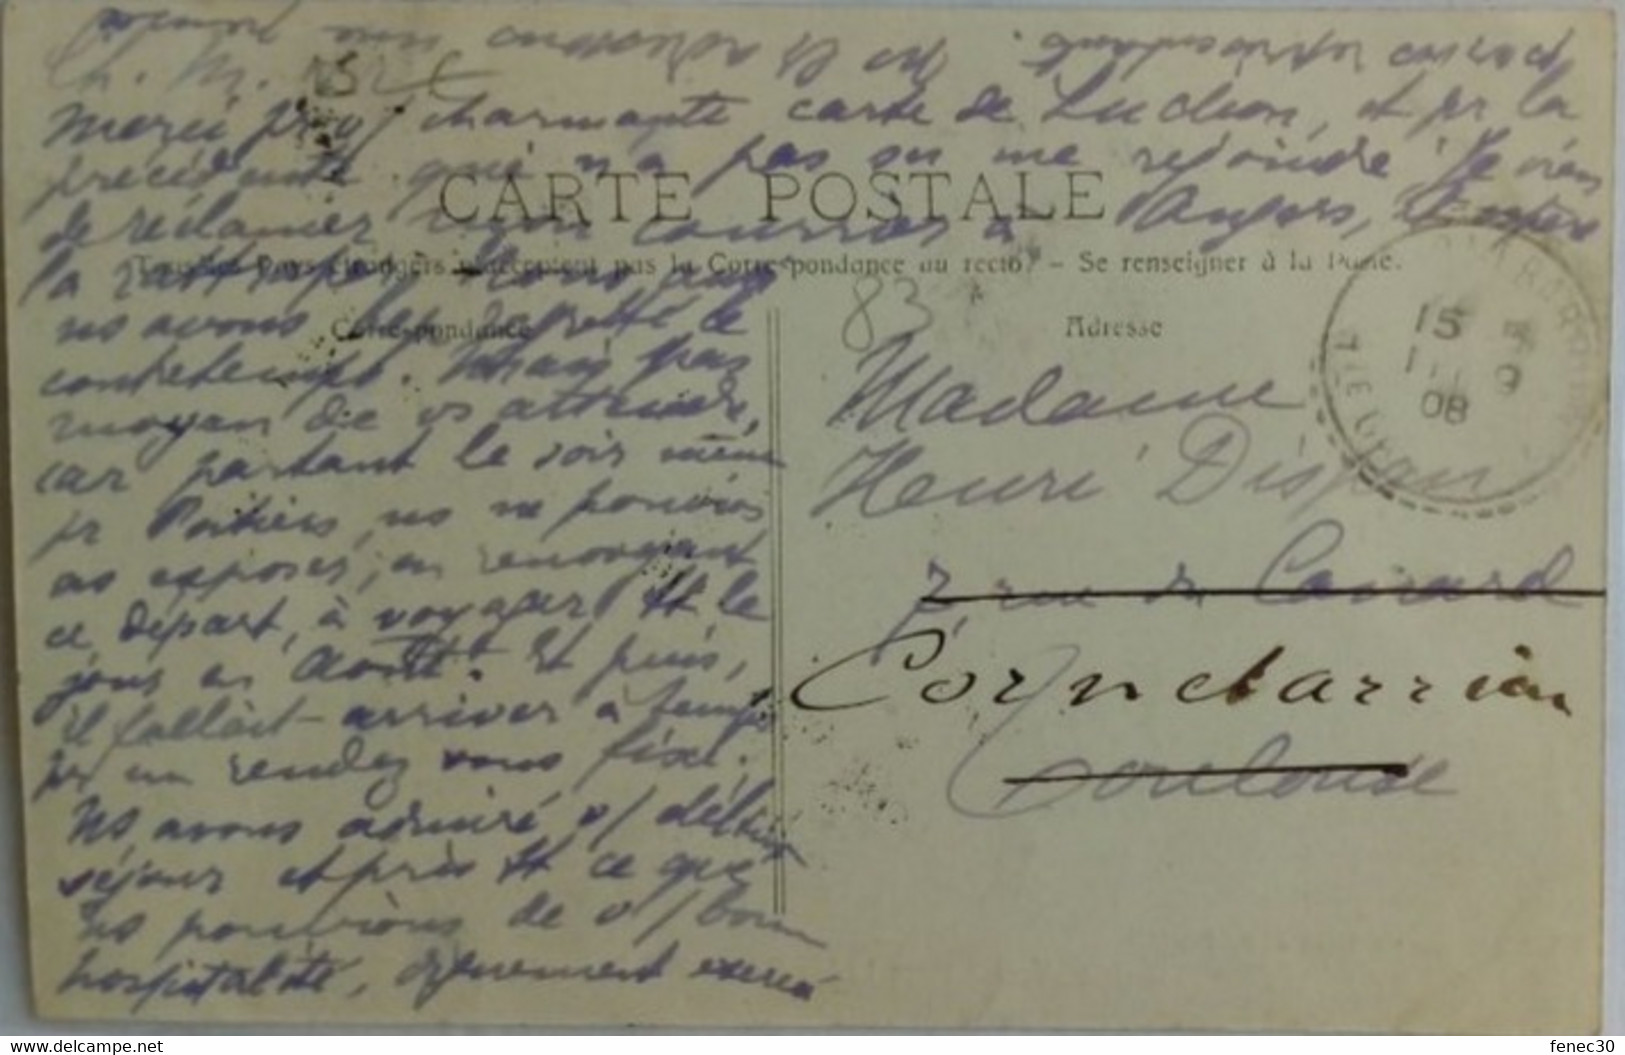 Merci pr v/ charmante carte de Luchon, et pr la
précédente qui n'a pas su me rejoindre. Je viens
de réclamer mon courrier à Angers, j'espère
CARTE POSTALE
Tous les Pays étrangers n'acceptent pas la Correspondance au recto. - Se renseigner à la Poste.
la rattraper.
ns avons regretté ce
Correspondance
Adresse
83
contretemps. Mais pas
moyen de vs attendre,
car partant le soir même
pr Poitiers, ns ne pouvions
ns exposer, en renvoyant
ce départ, à voyager tt le
jour en Août. Et puis,
il fallait arriver à temps
pr un rendez vous fixé.
Ns avons admiré v/ délicieux
séjour et près tt ce que
ns pouvions de v/ bonne
hospitalité,
Madame
Henri
7, rue du Canard
Cornebarrieu
Toulouse
15
9
08
www.delcampe.net
fenec30